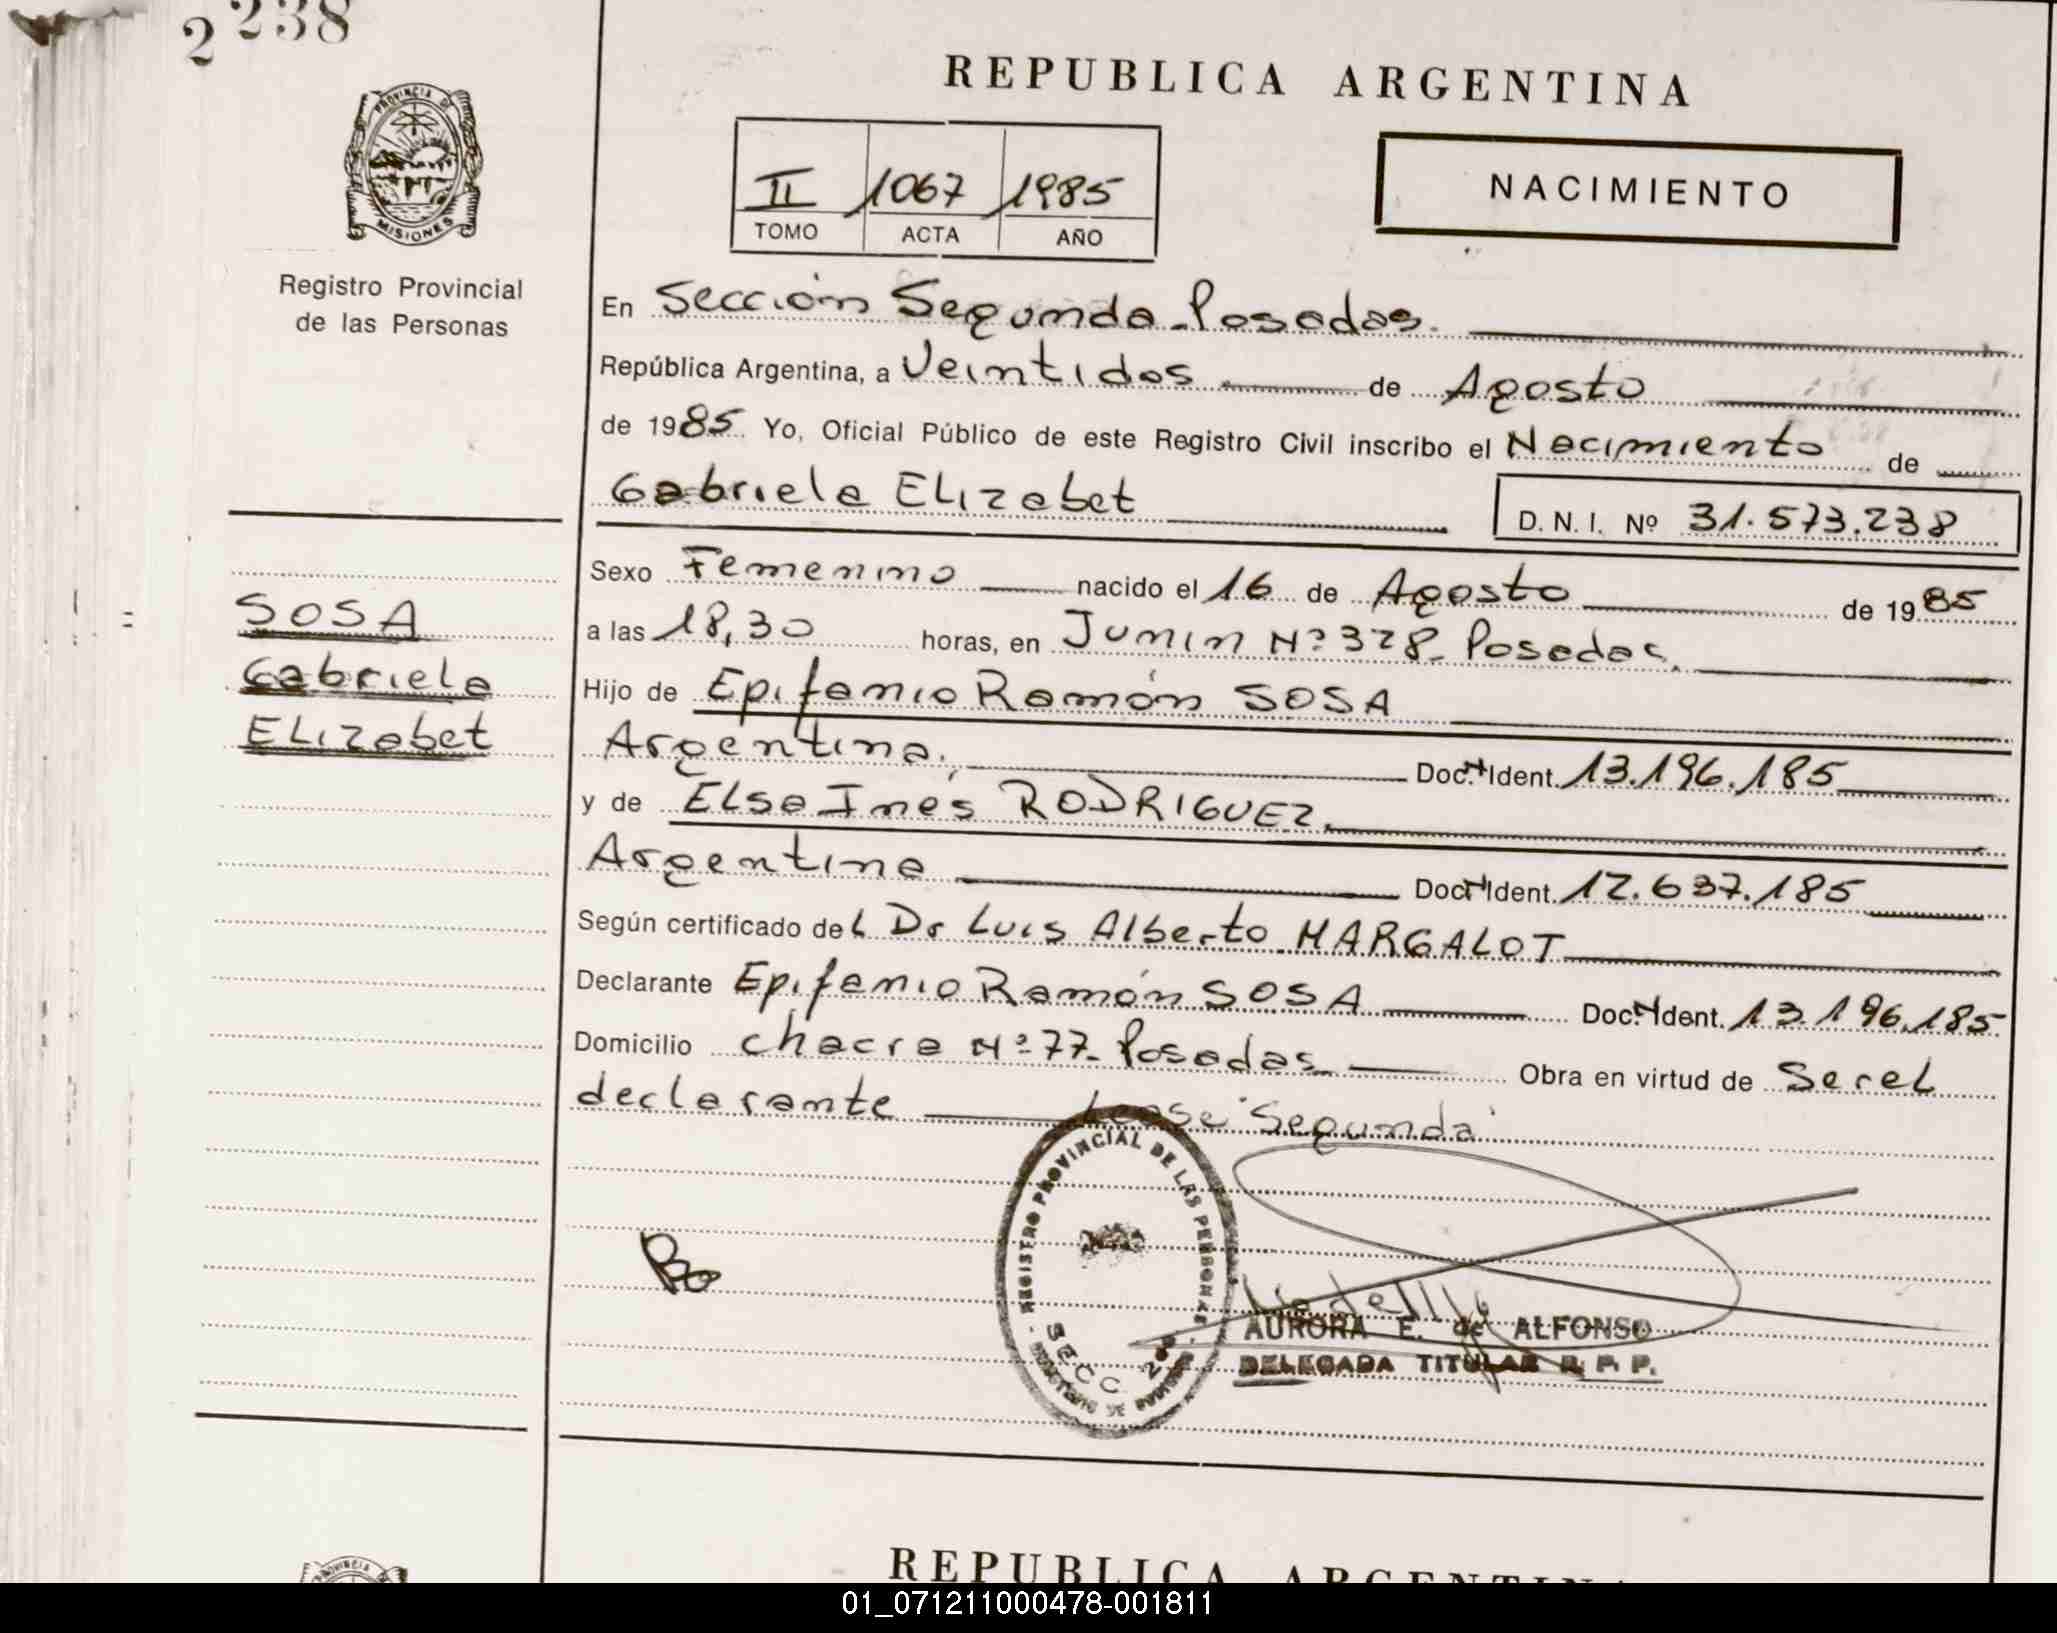 2238
PROVINCIA DE
MISIONES
Registro Provincial
de las Personas
SOSA
Gabriela
ELizabet
REPUBLICA ARGENTINA
II 1067 1985
TOMO ACTA AÑO
NACIMIENTO
En Sección Segunda-Posadas.
República Argentina, a Veintidos de Agosto
de 1985 Yo, Oficial Público de este Registro Civil inscribo el Nacimiento de
Gabriela ELizabet D. N. I. Nº 31.573.238
Sexo Femenino nacido el 16 de Agosto de 1985
a las 18,30 horas, en Junin Nº 328- Posadas.
Hijo de Epifanio Ramón SOSA
Argentina. Doc. N Ident. 13.196.185
y de ELsa Inés RODRIGUEZ.
Argentina Doc. N Ident. 12.637.185
Según certificado deL Dr Luis Alberto MARGALOT
Declarante Epifanio Ramón SOSA Doc. N Ident. 13.196.185
Domicilio chacra Nº 77- Posadas Obra en virtud de SereL
declarante Lease "Segunda"
REGISTRO PROVINCIAL DE LAS PERSONAS
SECC 2
AURORA E. de ALFONSO
DELEGADA TITULAR R. P. P.
PROVINCIA
REPUBLICA ARGENTINA
01_071211000478-001811